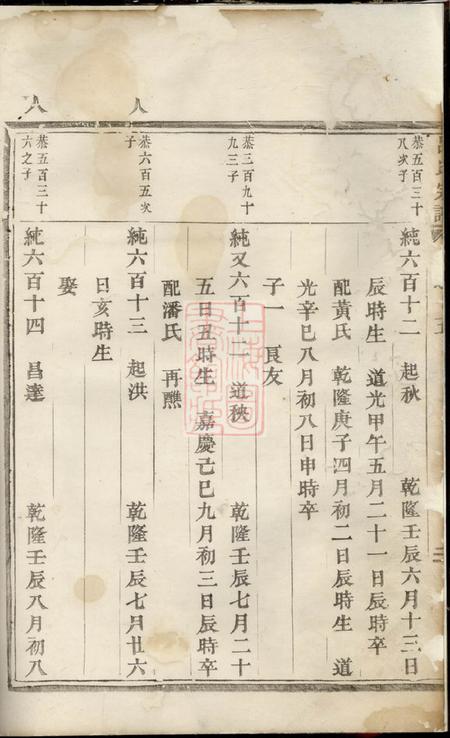 恭五百三十
八次子
純六百十二 起秋 乾隆壬辰六月十三日
辰時生 道光甲午五月二十一日辰時卒
配黃氏 乾隆庚子四月初二日辰時生 道
光辛巳八月初八日申時卒
子一 良友
恭三百九十
九三子
純又六百十二 道秧 乾隆壬辰七月二十
五日丑時生 嘉慶己巳九月初三日辰時卒
配潘氏 再醮
恭六百五次
子
純六百十三 起洪 乾隆壬辰七月廿六
日亥時生
娶
恭五百三十
六之子
純六百十四 昌達 乾隆壬辰八月初八